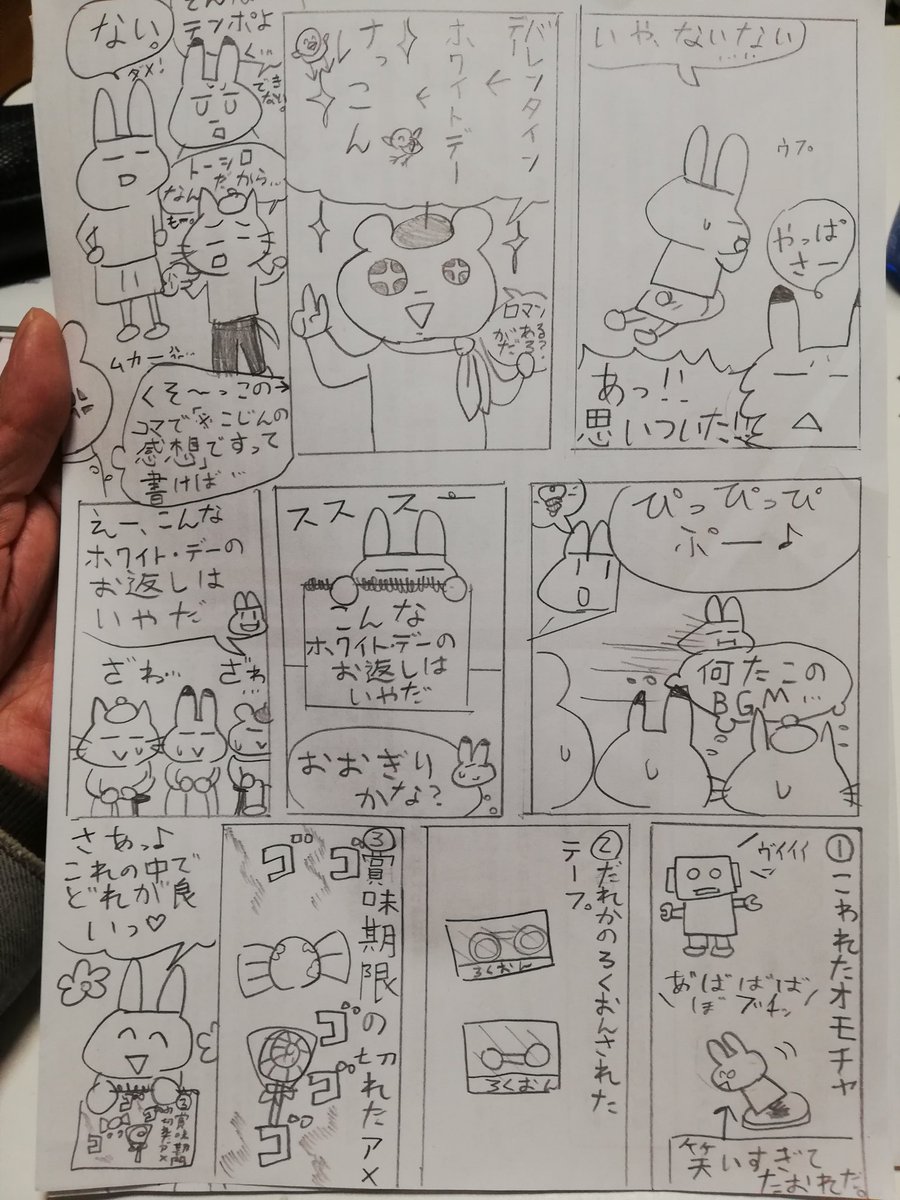 いや、ないない
……
ウプ。
やっぱ
さー
あっ!!
思いついた!!て
バレンタイン
デー
↓
ホワイトデー
↓
けっこん
ロマン
がある?
だろ
テンポよ
く…
でき
ない。
ない。
ダメ!
トーシロ
だから…
なん
もー。
ムカー…
くそ〜っこの→
コマで「※こじんの
感想」ですって
書けば…
ぴっぴっぴ
ぷー♪
何だこの
BGM…
スススー
こんな
ホワイト・デーの
お返しは
いやだ
おおぎり
かな?
えー、こんな
ホワイト・デーの
お返しは
いやだ
ざわ…
ざわ…
①こわれたオモチャ
ヴイイイ
あばばばば
ぼブッチン
笑いすぎて
たおれた。
②だれかのろくおんされた
テープ
ろくおん
ろくおん
③賞味期限の切れたアメ
ゴゴゴゴゴ
さあっ♪
これの中で
どれが良
いっ♡
③賞味期限
の切れたアメ